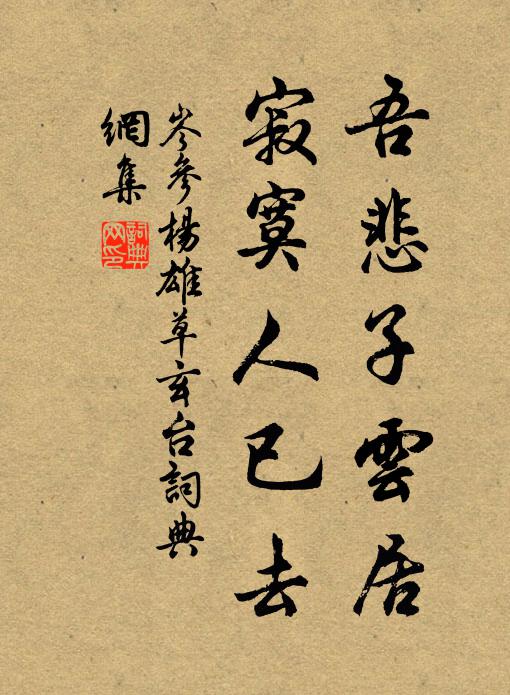 吾悲子雲居
寂寞人已去
岑參楊雄草玄台詞典
網集
詞典
网印